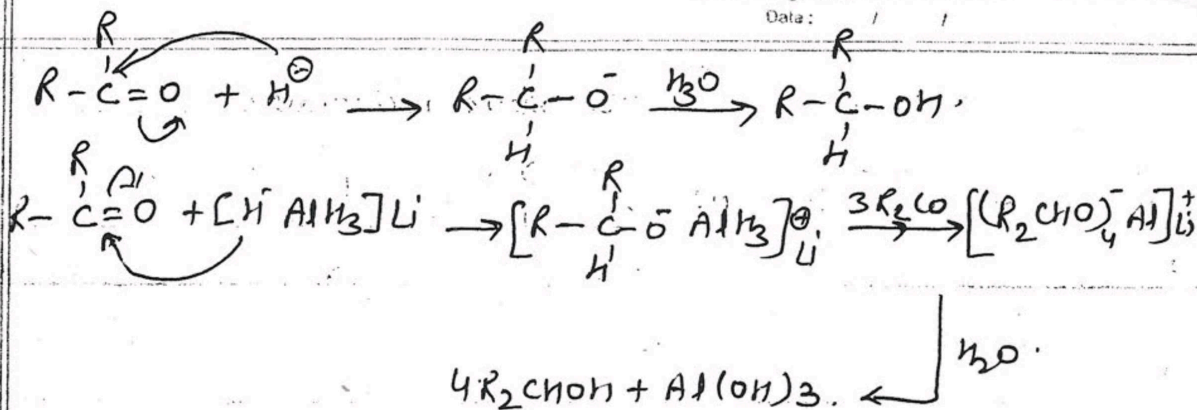 Data: / /
R
R
R
R-C=O + H⊖ → R-C-O⁻ H₃O → R-C-OH.
H
H
R
R
R-C=O + [H⁻ AlH₃]Li → [R-C-O⁻ AlH₃]⊕Li 3R₂CO → [(R₂CHO)₄⁻ Al]Li⁺
H
H₂O.
4R₂CHOH + Al(OH)3. ←